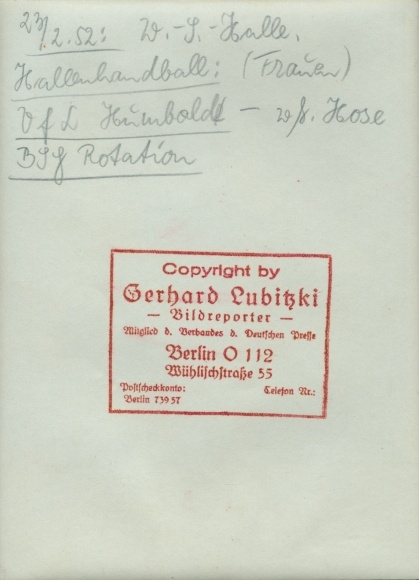 23/2.52: W.-S.-Halle.
Hallenhandball: (Frauen)
VfL Humboldt – w/s. Hose
BSG Rotation
Copyright by
Gerhard Lubitzki
— Bildreporter —
Mitglied d. Verbandes d. Deutschen Presse
Berlin O 112
Wühlischstraße 55
Postscheckkonto: Telefon Nr.:
Berlin 739 57